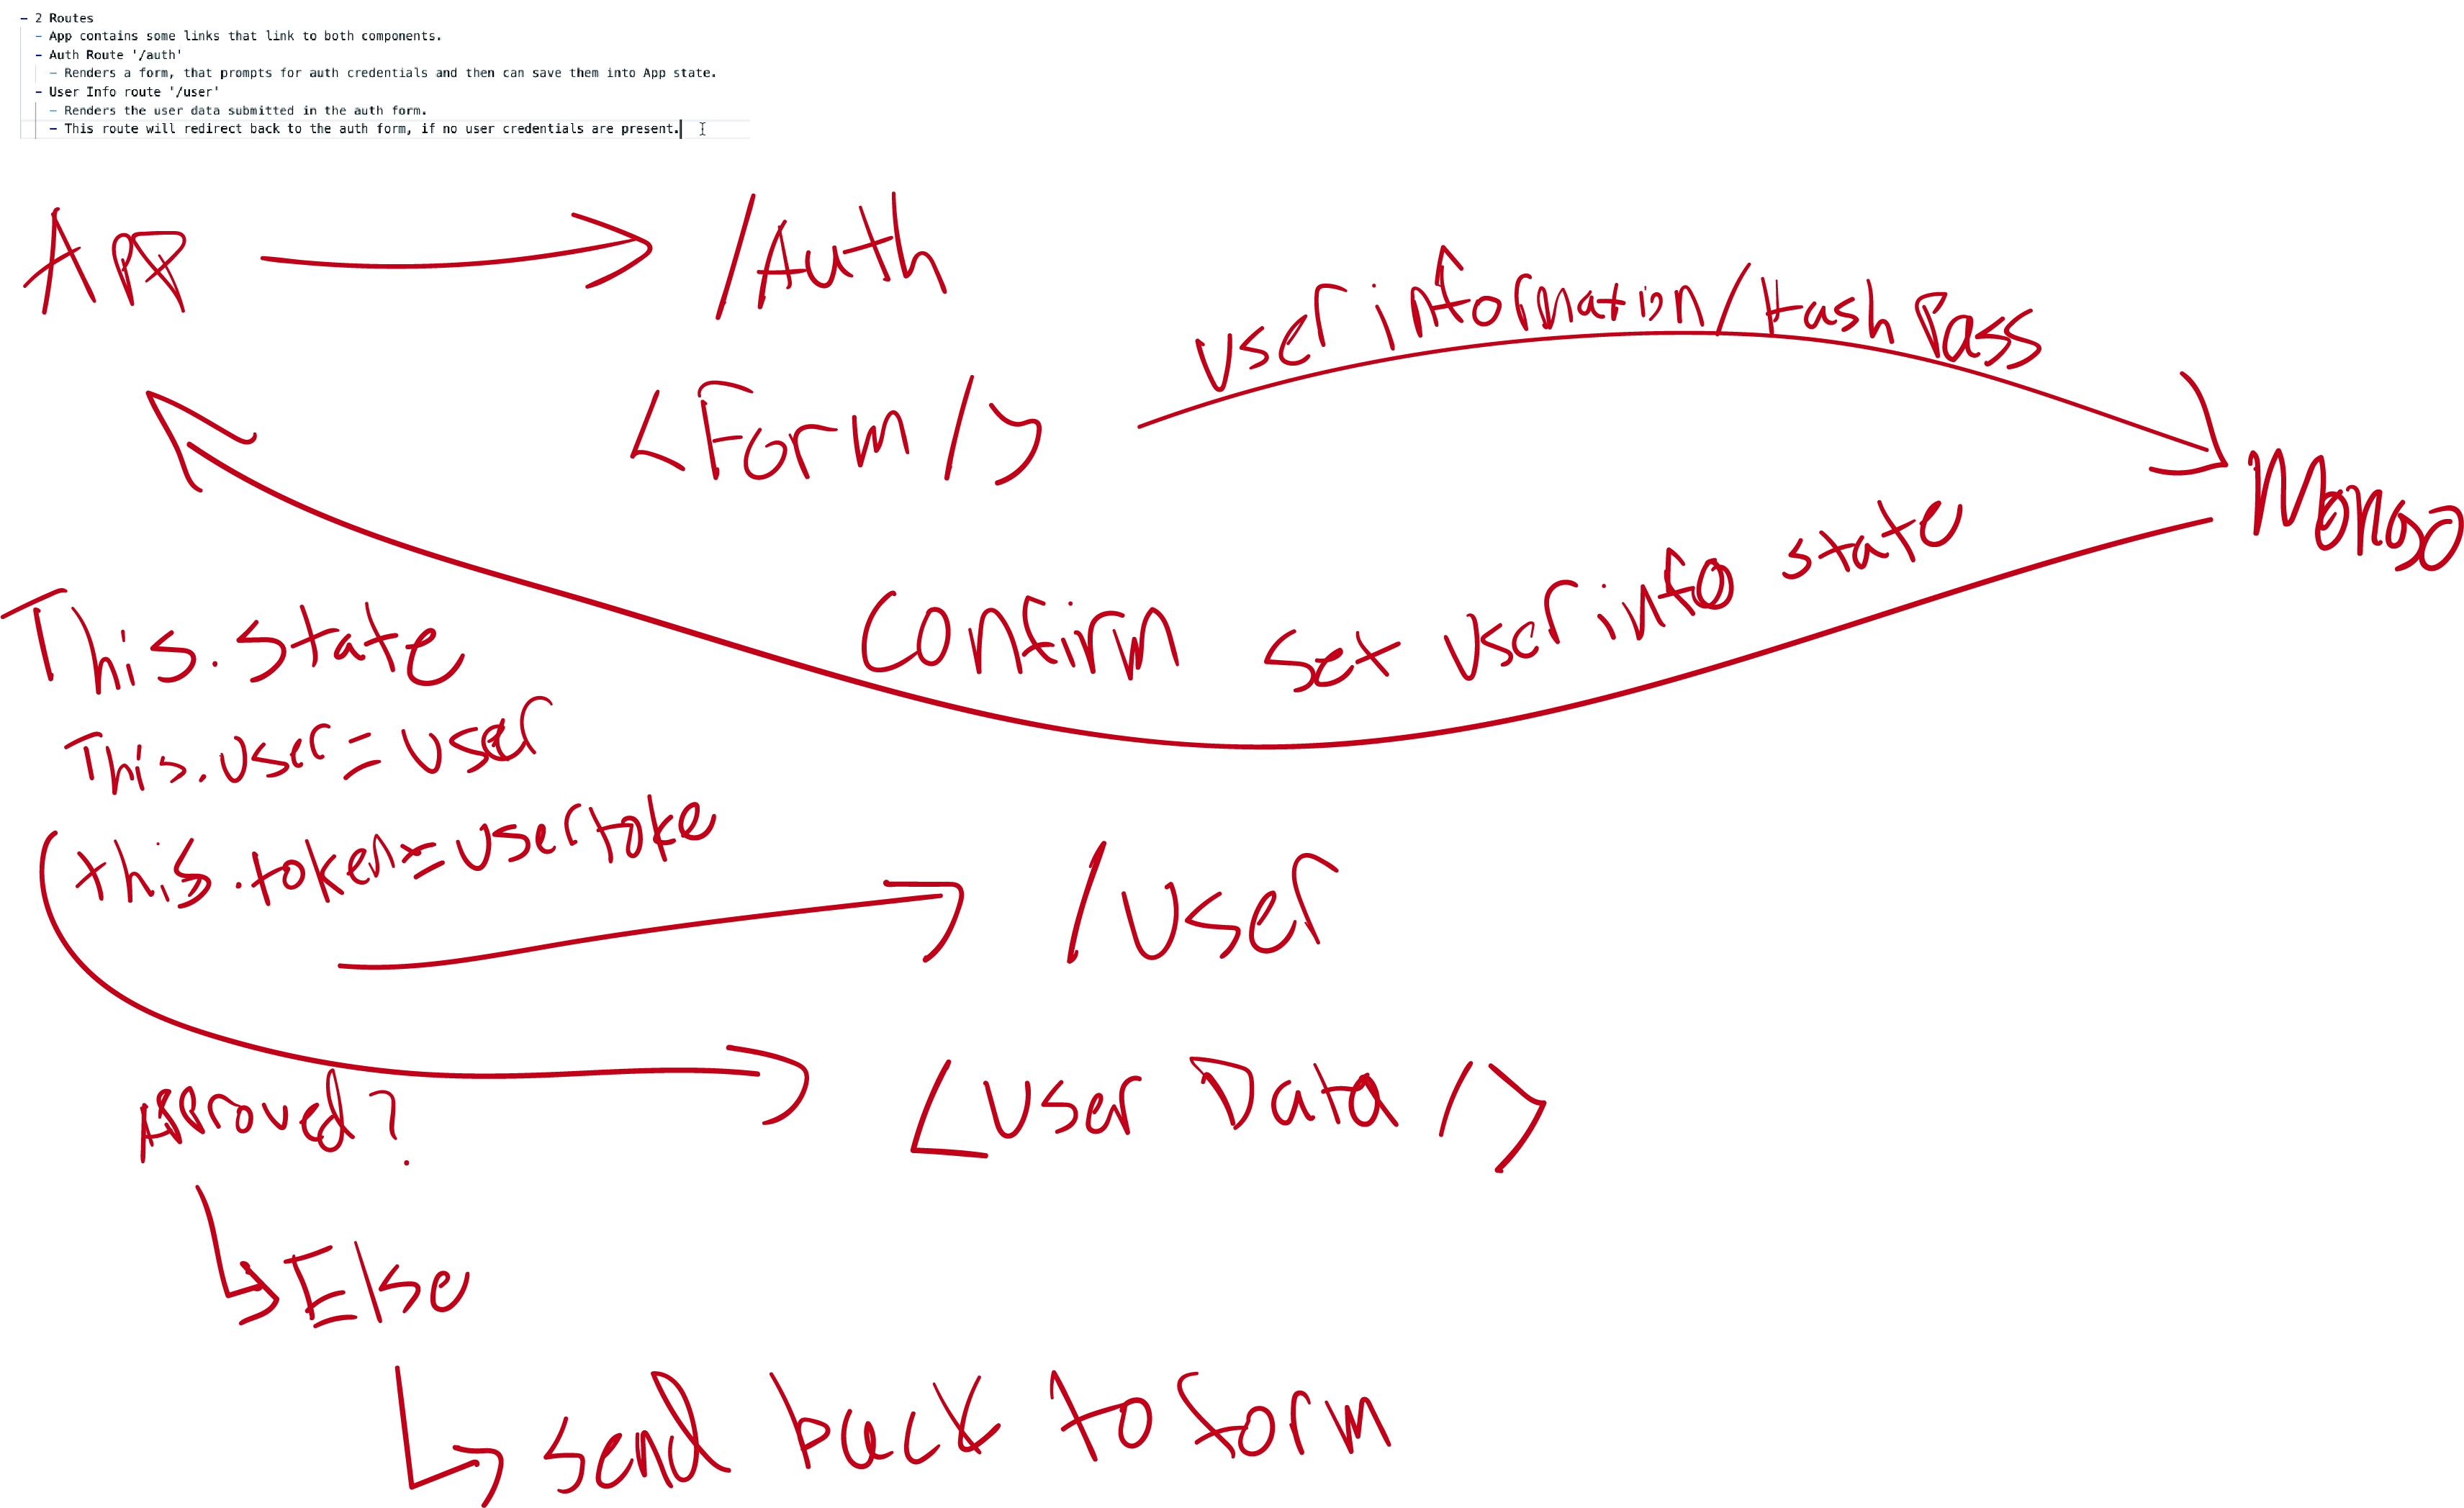 - 2 Routes
- App contains some links that link to both components.
- Auth Route '/auth'
- Renders a form, that prompts for auth credentials and then can save them into App state.
- User Info route '/user'
- Renders the user data submitted in the auth form.
- This route will redirect back to the auth form, if no user credentials are present.
App
/Auth
User information/Hash Pass
<Form/>
Mongo
Confirm
Set user info state
This.state
This.user=user
this.token=user
/User
<User Data/>
Else
send back to form